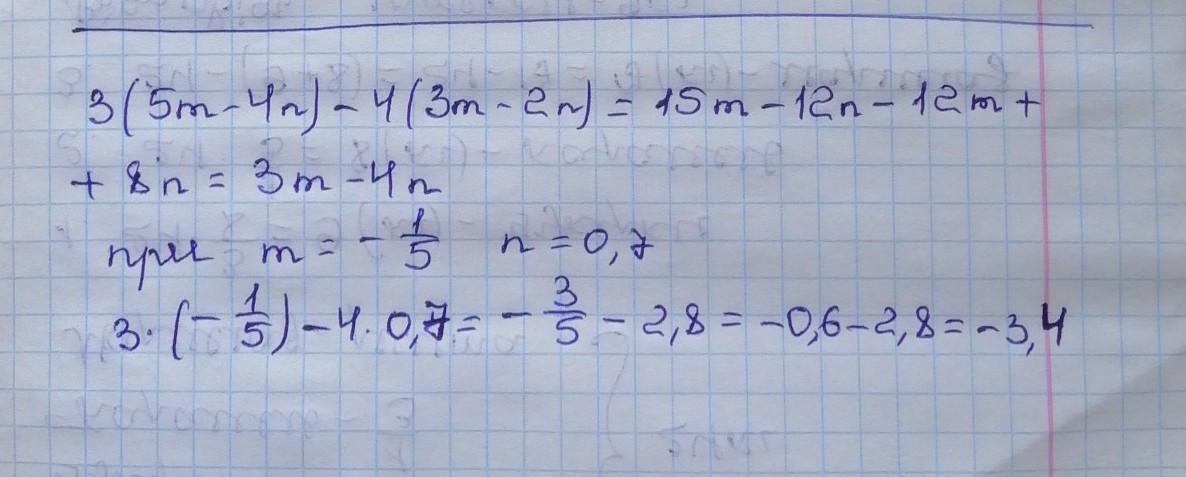 3(5m-4n)-4(3m-2n)=15m-12n-12m+
+8n=3m-4n
при m=-1/5 n=0,7
3·(-1/5)-4·0,7=-3/5-2,8=-0,6-2,8=-3,4